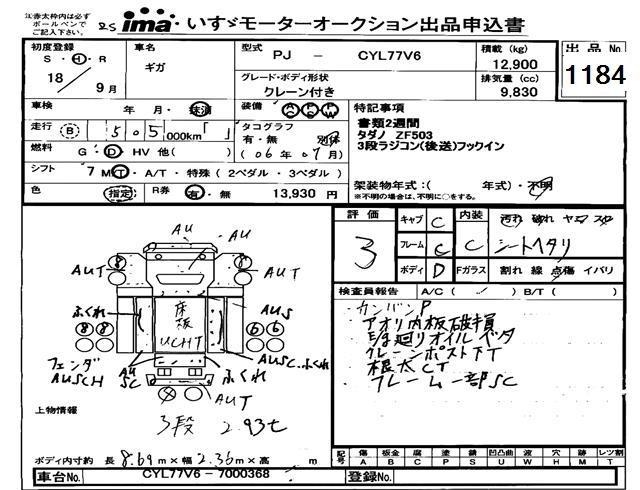 ima いすゞモーターオークション出品申込書
江赤太枠内は必ず
ボールペンで
ご記入下さい。
初度登録
S・H・R
18 / 9月
車名
ギガ
型式 PJ － CYL77V6
グレード・ボディ形状
クレーン付き
積載 (kg)
12,900
排気量 (cc)
9,830
出品No.
1184
車検 年 月・抹消
装備 AC PS PW
走行 (B) 505,000km「 」
タコグラフ
有・無 別体
(06年07月)
燃料 G・D・HV 他( )
シフト 7 MT・A/T・特殊(2ペダル・3ペダル)
色 指定 R券 有・無 13,930 円
特記事項
書類2週間
タダノ ZF503
3段ラジコン(後送)フックイン
架装物年式:( 年式)・不明
※不明の場合は、不明に○をする。
評価 3
キャブ C
フレーム C
ボディ D
内装 C
汚れ 破れ ヤニ スレ
シートヘタリ
Fガラス 割れ 線 点傷 イパリ
検査員報告 A/C( ) B/T( )
カンバンP
アオリ内板破損
E/g廻りオイルベタ
クレーンポストTT
根太CT
フレーム一部SC
AU
AU
8
8
AUT
AUT
ふくれ
床板
UCHT
AUS
8 8
6 6
フェンダ
AUSCH
AU
SC
AUSC.ふくれ
ふくれ
AUT
上物情報
3段 2.93t
ボディ内寸約 長 8.69m×幅 2.36m×高 m
記号
傷 A
板金 B
腐 C
塗 P
錆 S
凹凸曲 U
波 W
穴 H
飛 M
レツ割 T
車台No. CYL77V6 - 7000368
登録No.